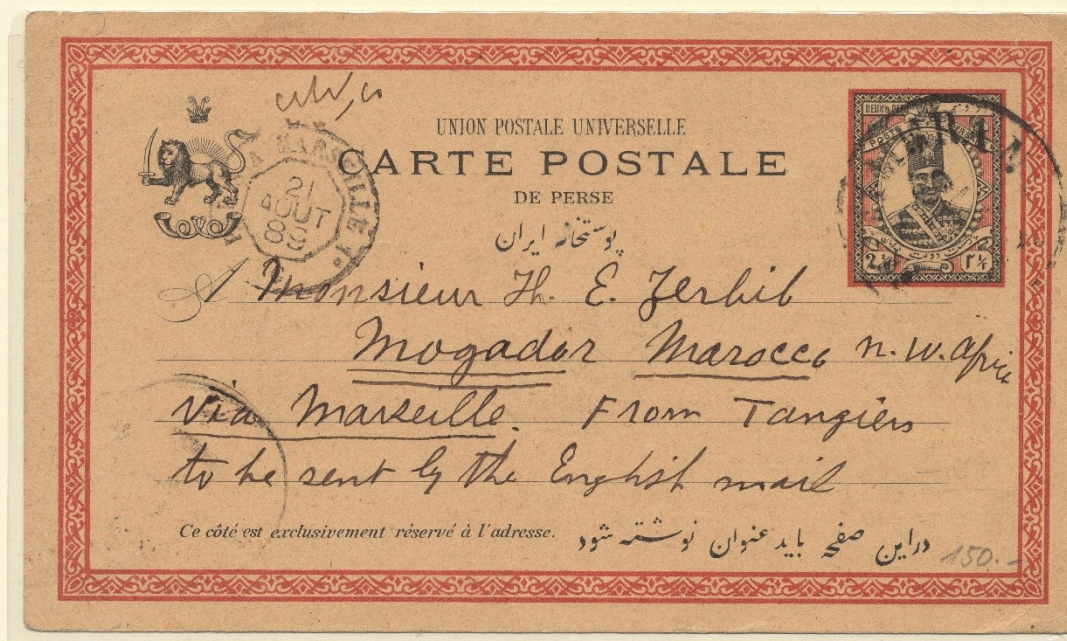 UNION POSTALE UNIVERSELLE
CARTE POSTALE
DE PERSE
پوستخانه ایران
A MARSEILLE 1º
21
AOUT
TEHERAN
2½
۲½
A Monsieur Th. E. Zerbib
Mogador Marocco N. W. Africa
via Marseille. From Tangiers
to be sent by the English mail
Ce côté est exclusivement réservé à l'adresse.
دراین صفحه باید عنوان نوشته شود
150.-